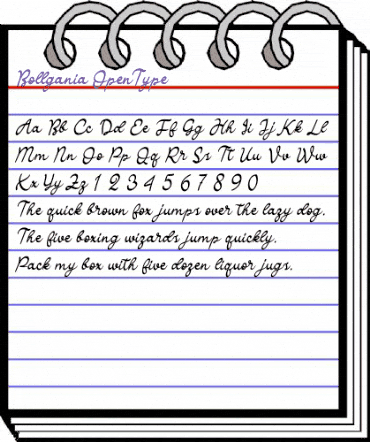 Bollgania OpenType
Aa Bb Cc Dd Ee Ff Gg Hh Ii Jj Kk Ll
Mm Nn Oo Pp Qq Rr Ss Tt Uu Vv Ww
Xx Yy Zz 1 2 3 4 5 6 7 8 9 0
The quick brown fox jumps over the lazy dog.
The five boxing wizards jump quickly.
Pack my box with five dozen liquor jugs.